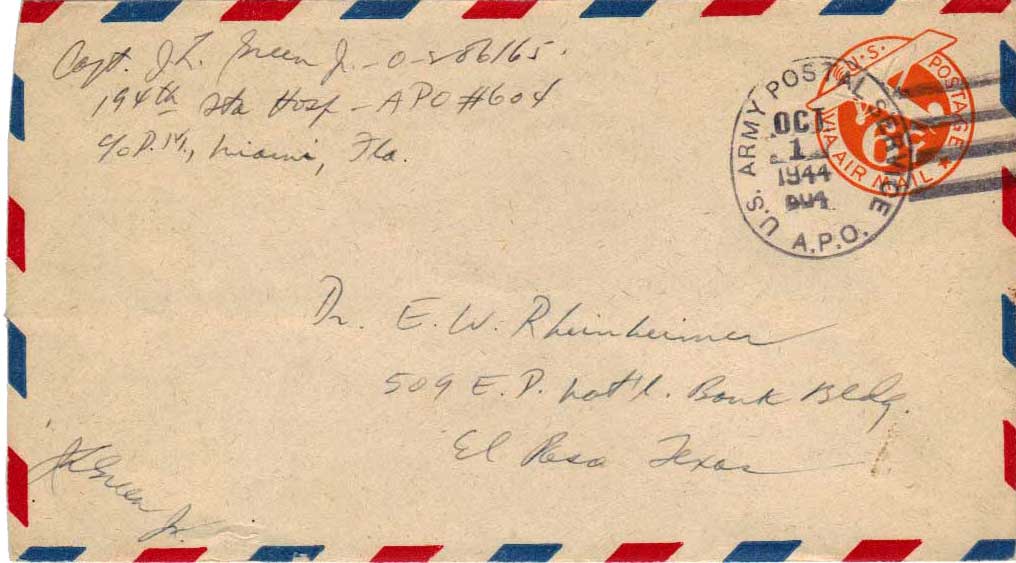 Capt. J L. Green Jr. - O-286165.
194th Sta Hosp - APO #604
c/o P.M., Miami, Fla.
U.S. POSTAGE
VIA AIR MAIL
6¢
U.S. ARMY POSTAL SERVICE
OCT
1
1944
A.P.O.
Dr. E. W. Rheinheimer
509 E. P. Nat'l. Bank Bldg.
El Paso Texas
JLGreen Jr.